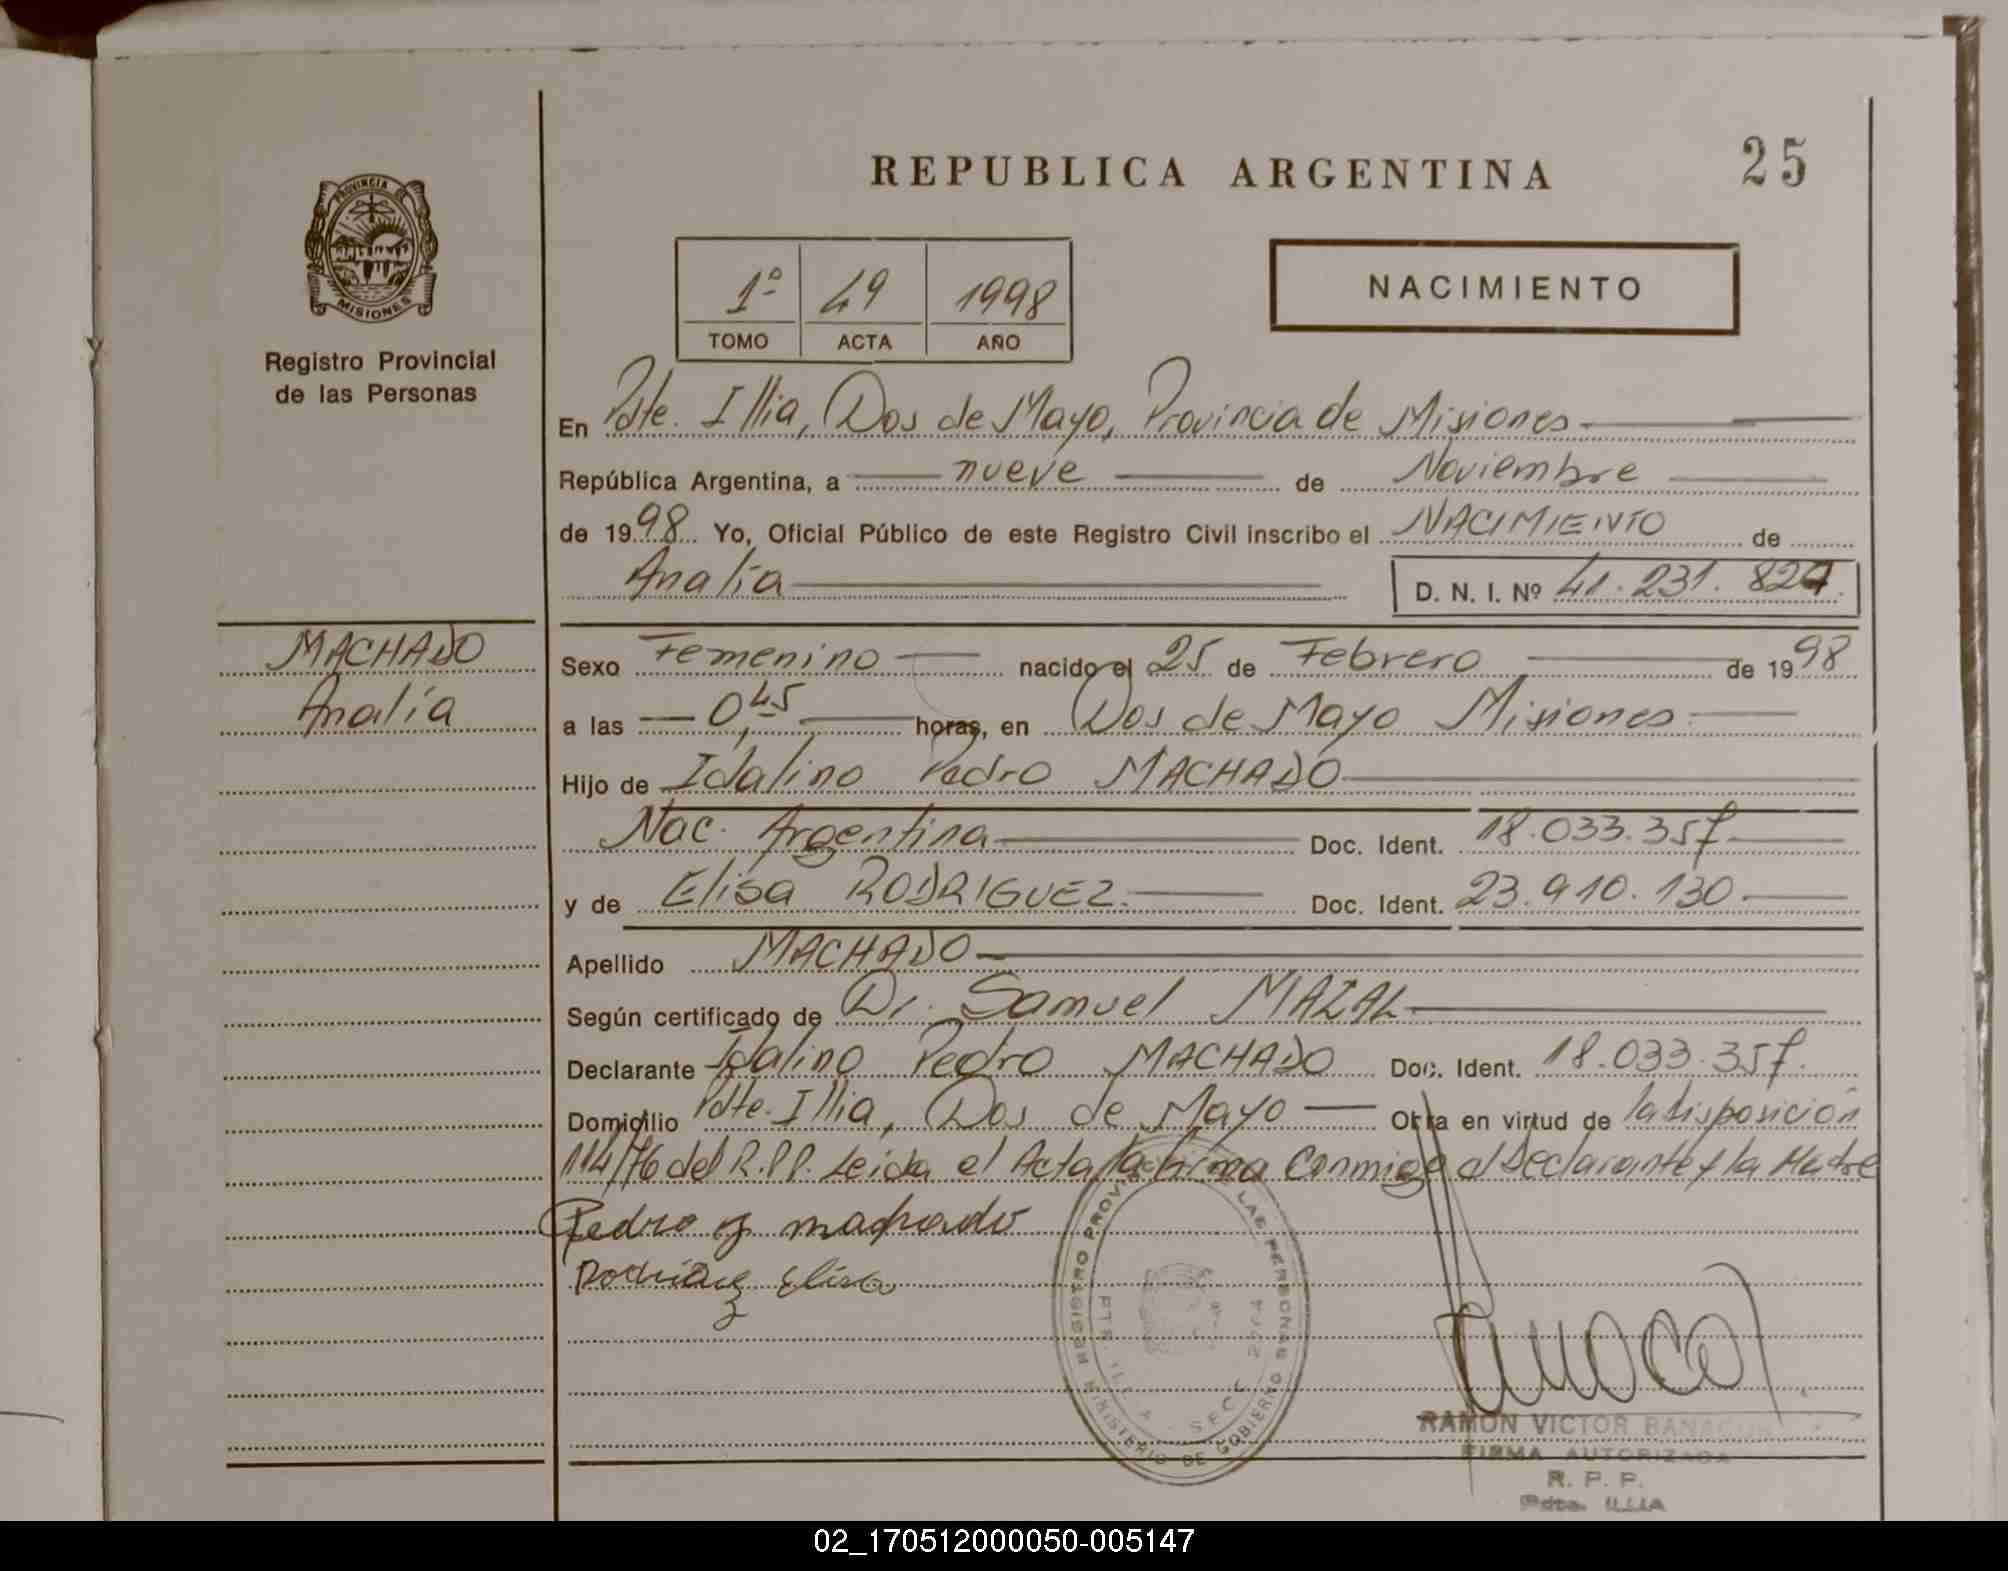 REPUBLICA ARGENTINA
25
PROVINCIA DE
MISIONES
Registro Provincial
de las Personas
1º 49 1998
TOMO ACTA AÑO
NACIMIENTO
En Pdte. Illia, Dos de Mayo, Provincia de Misiones
República Argentina, a nueve de Noviembre
de 1998 Yo, Oficial Público de este Registro Civil inscribo el NACIMIENTO de
Analía D. N. I. Nº 41.231.827
MACHADO
Analía
Sexo Femenino nacido el 25 de Febrero de 1998
a las 0,45 horas, en Dos de Mayo Misiones
Hijo de Idalino Pedro MACHADO
Nac. Argentina Doc. Ident. 18.033.357
y de Elisa RODRIGUEZ. Doc. Ident. 23.910.130
Apellido MACHADO
Según certificado de Dr. Samuel MAZAL
Declarante Idalino Pedro MACHADO Doc. Ident. 18.033.357.
Domicilio Pdte. Illia, Dos de Mayo Obra en virtud de la disposición
114/76 del R.P.P. Leida el Acta la firma Conmigo el Declarante y la Madre
Pedro machado
Rodriguez Elisa
REGISTRO PROVINCIAL DE LAS PERSONAS
MINISTERIO DE GOBIERNO
PTE. ILLIA - SECC
RAMON VICTOR
FIRMA AUTORIZADA
R. P. P.
Pdte. ILLIA
02_170512000050-005147